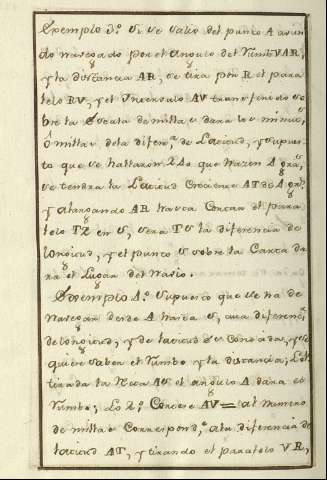 Exemplo 3º. Si se salio del punto A avien
do navegado por el Angulo del Rumbo VAR,
y la distancia AR, se tira por R el para
lelo RV, y el Intervalo AV transferido so
bre la Escala de millas dara los minutˢ,
ó millas, dela diferª. de Latitud, y supues
to que se hallaron 240 que hazen 4 graˢ,
se tendra la Latitud Creciente AT de 4 grˢ
y alargando AR hasta Cortar el para
lelo TZ en S, sera TS la diferencia de
longitud, y el punto S sobre la Carta da
ra el Lugar del Navio.
Exemplo 4º. Supuesto que se ha de
Navegar desde A hasta S, cuia diferencª.
de longitud, y de latitud es Conocida, y se
quiere saber el Rumbo y la distancia; Lo 1º
tirada la Recta AS el angulo A dara el
Rumbo; Lo 2º. Corese AV = al numero
de millas Correspondᵗᵉ. ala diferencia de
latitud AT, y tirando el paralelo VR,